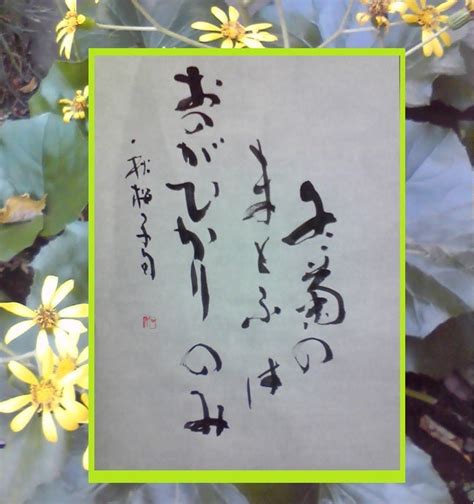 冬菊の
まとふは
おのがひかりのみ
秋桜子句